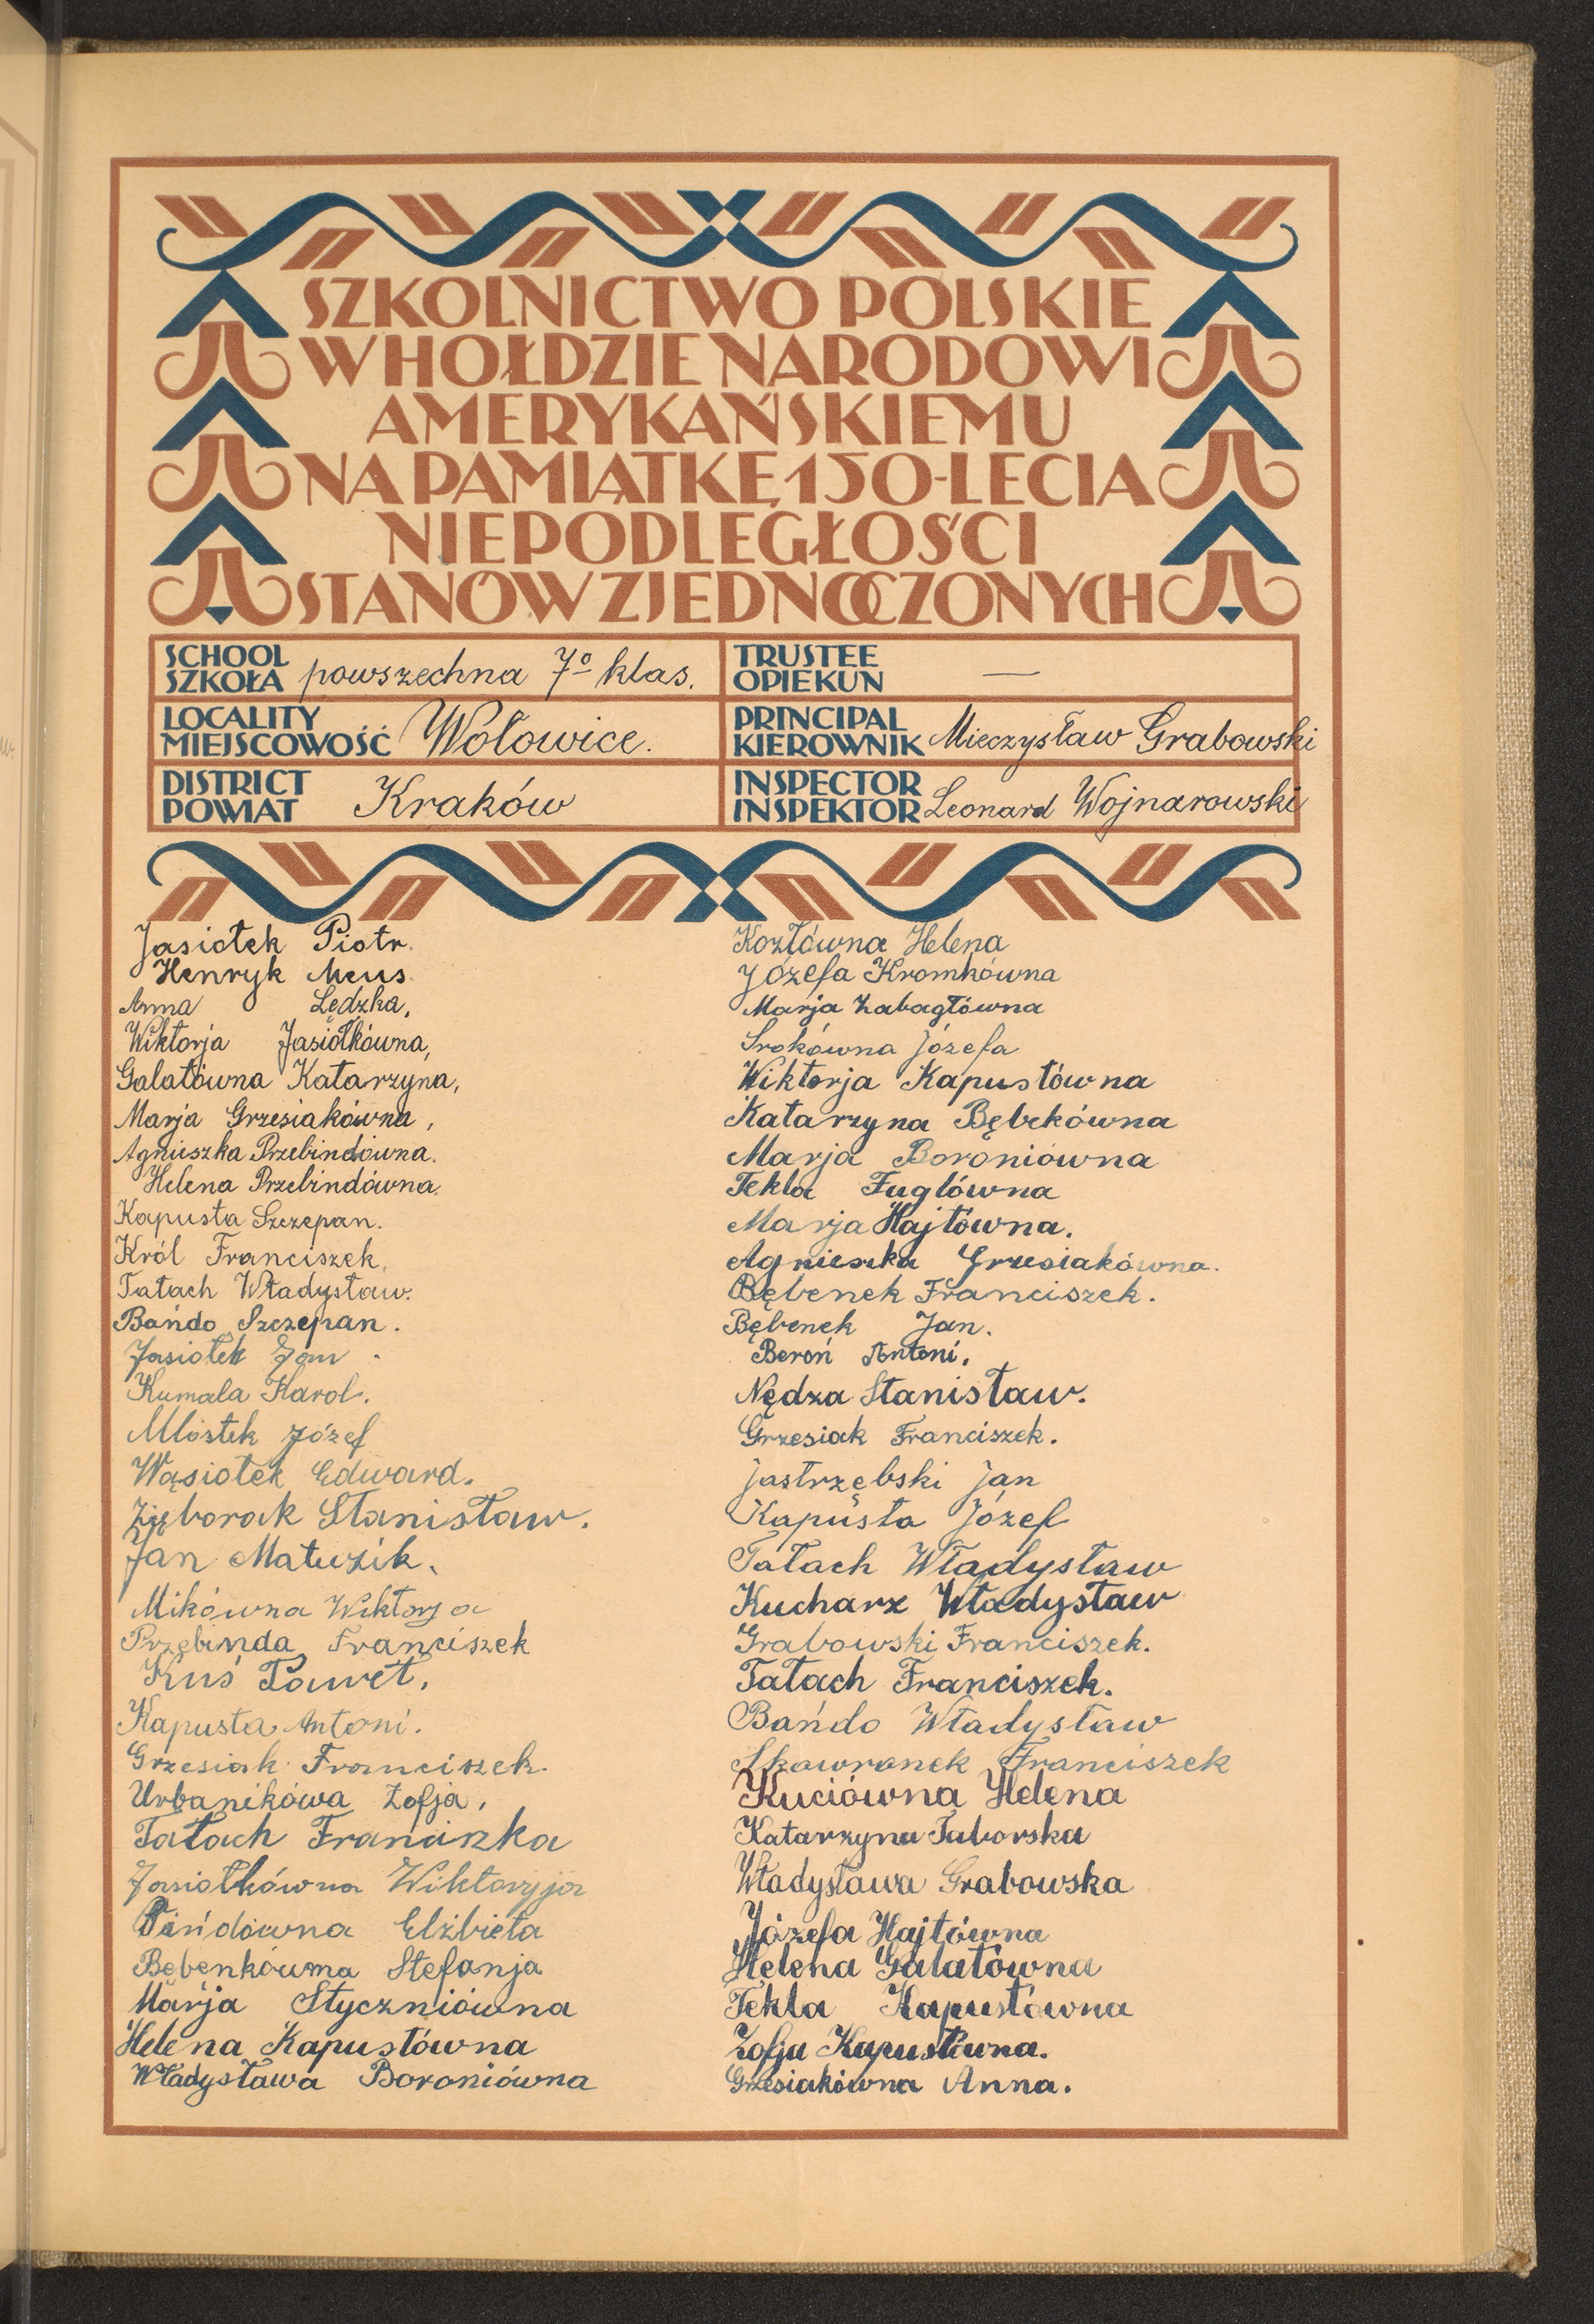 SZKOLNICTWO POLSKIE
W HOŁDZIE NARODOWI
AMERYKAŃSKIEMU
NA PAMIĄTKĘ 150-LECIA
NIEPODLEGŁOŚCI
STANÓW ZJEDNOCZONYCH
SCHOOL
SZKOŁA powszechna 7º klas.
TRUSTEE
OPIEKUN —
LOCALITY
MIEJSCOWOŚĆ Wołowice.
PRINCIPAL
KIEROWNIK Mieczysław Grabowski
DISTRICT
POWIAT Kraków
INSPECTOR
INSPEKTOR Leonard Wojnarowski
Jasiołek Piotr.
Henryk Meus.
Anna Lędzka,
Wiktorja Jasiółkówna,
Galatówna Katarzyna,
Marja Grzesiakówna,
Agnieszka Przebindówna.
Helena Przebindówna.
Kapusta Szczepan.
Król Franciszek,
Tatach Władysław.
Bańdo Szczepan.
Jasiołek Jan.
Kumala Karol.
Mlostek Józef
Wąsiołek Edward.
Zięborak Stanisław.
Jan Matuzik.
Mikówna Wiktorja
Przębinda Franciszek
Kuś Paweł.
Kapusta Antoni.
Grzesiak Franciszek.
Urbanikówa Zofja,
Tatach Franciszka
Jasiołkówna Wiktoryja
Elżbieta
Bębenkówna Stefanja
Marja Styczniówna
Helena Kapustówna
Władysława Boroniówna
Kozłówna Helena
Józefa Kromkówna
Marja Zabagłówna
Srokówna Józefa
Wiktorja Kapustówna
Katarzyna Bębekówna
Marja Boroniówna
Tekla Fuglówna
Marja Hajtówna.
Agnieszka Grzesiakówna.
Bębenek Franciszek.
Bębenek Jan.
Beroń Antoni.
Nędza Stanisław.
Grzesiak Franciszek.
Jastrzębski Jan
Kapusta Józef
Tatach Władysław
Kucharz Władysław
Grabowski Franciszek.
Tatach Franciszek.
Bańdo Władysław
Skowronek Franciszek
Kuciówna Helena
Katarzyna Taborska
Władysława Grabowska
Józefa Hajtówna
Helena Galatówna
Tekla Kapustówna
Zofja Kapustówna.
Grzesiakówna Anna.